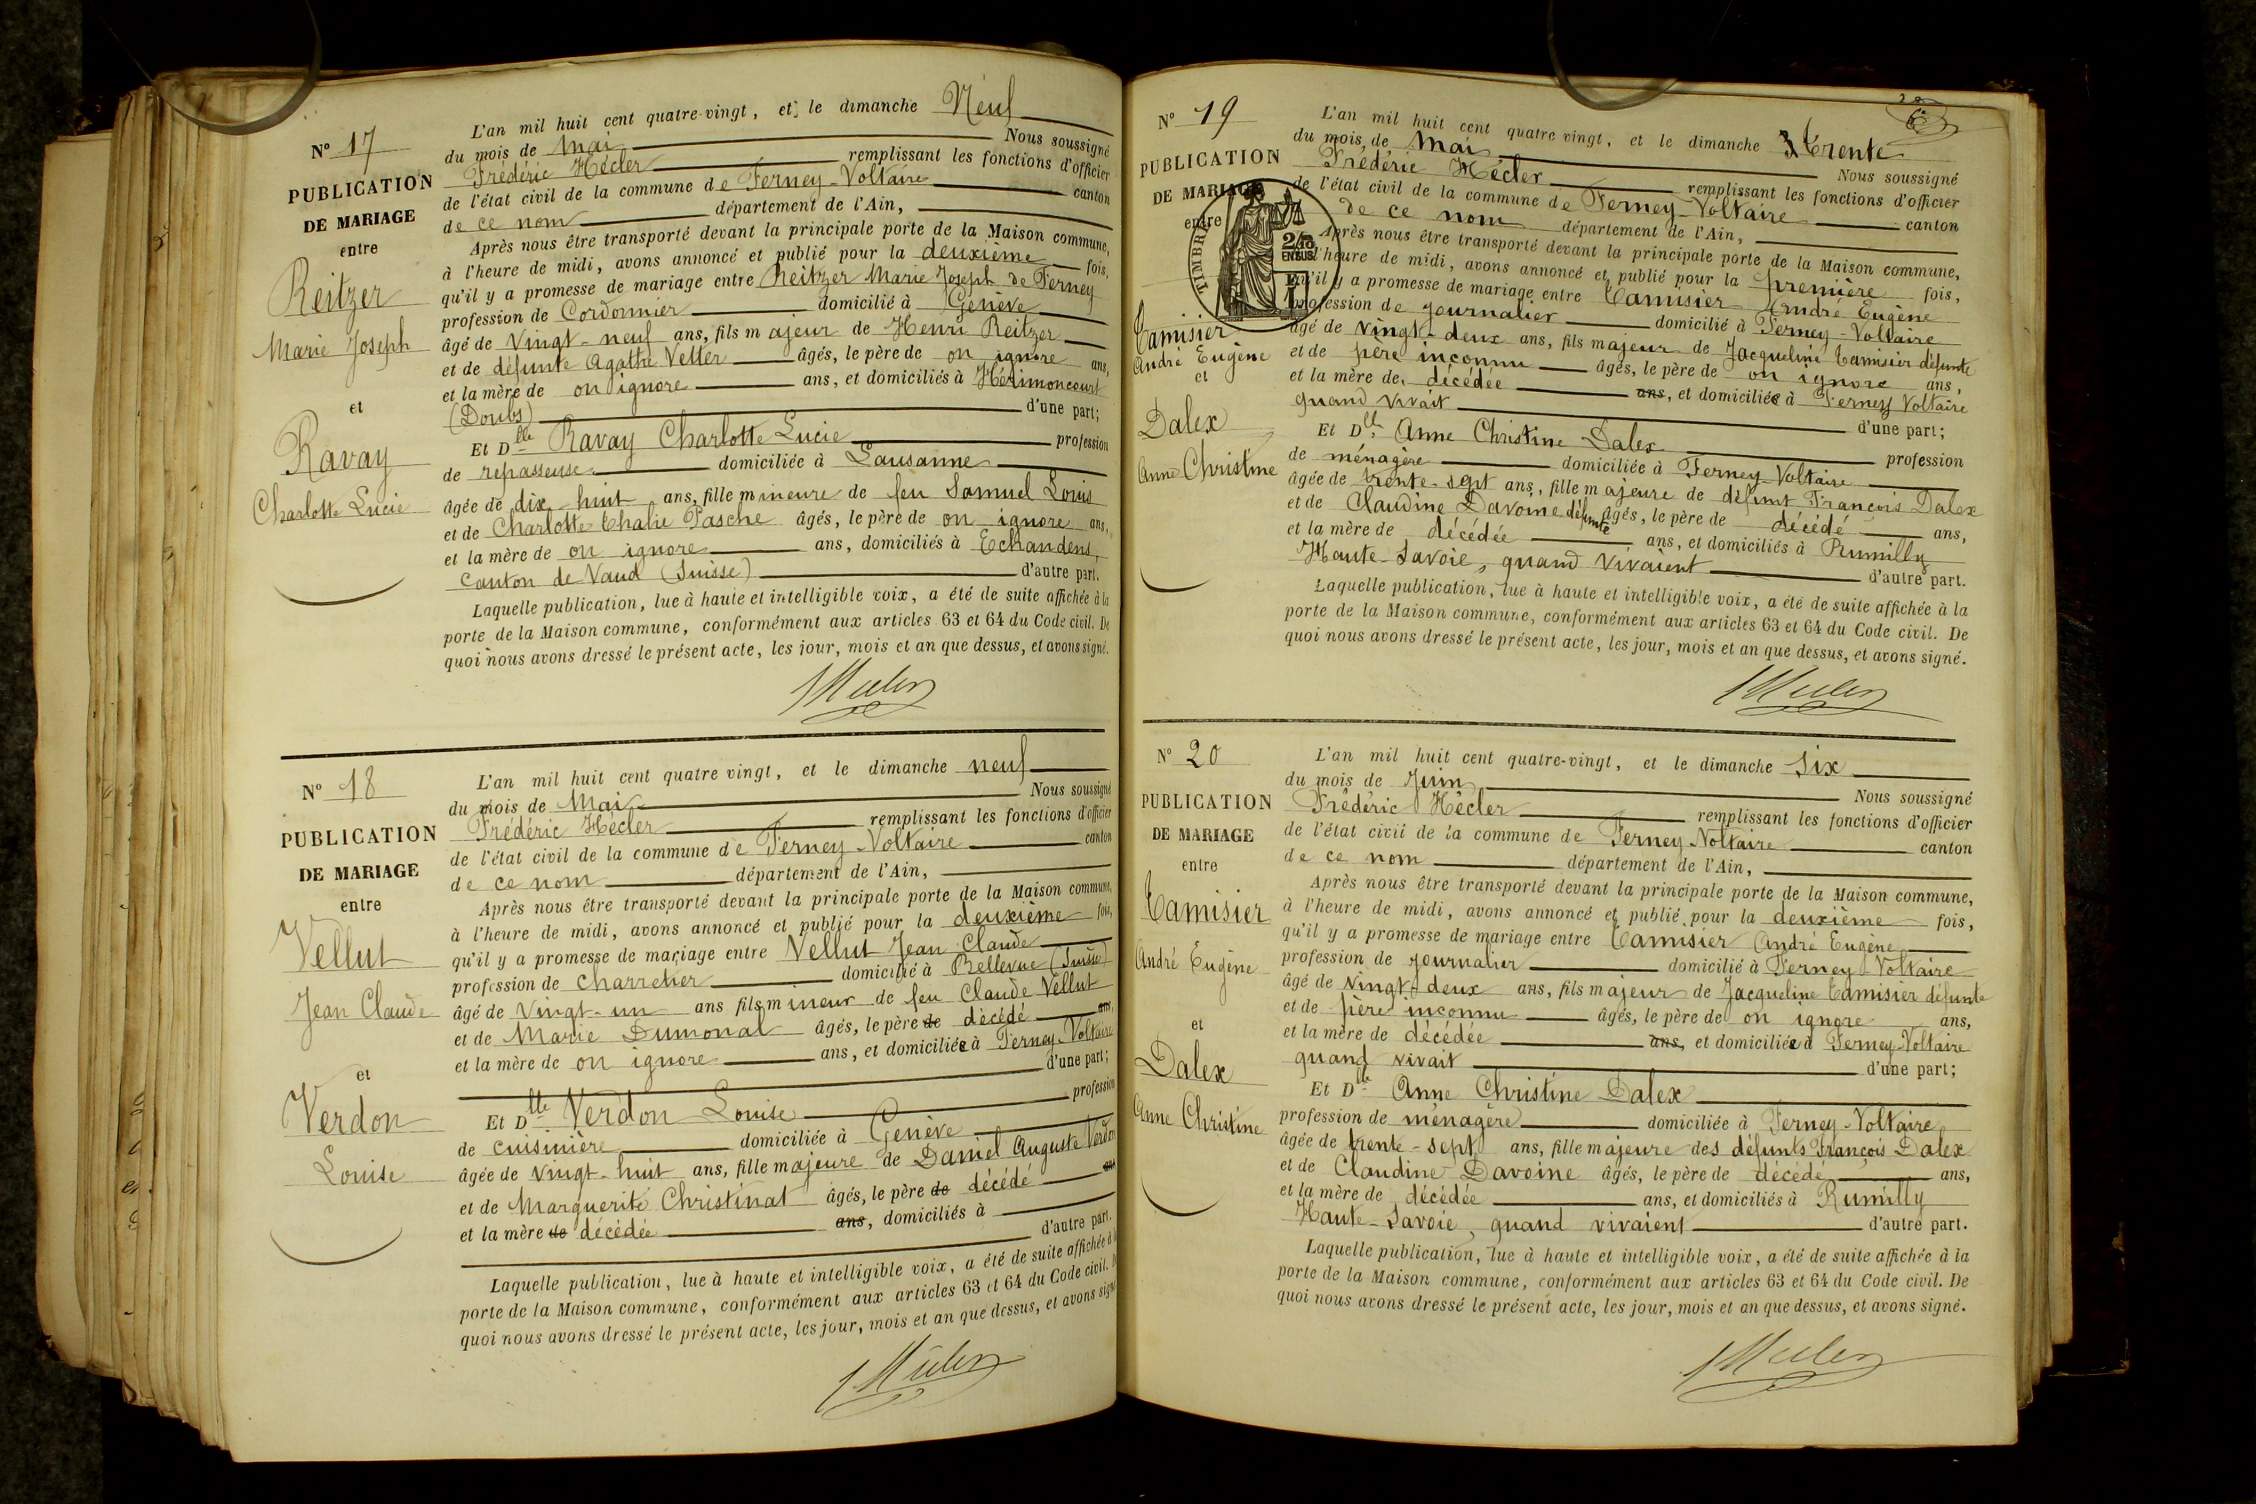 N° 17
PUBLICATION
DE MARIAGE
entre
Reitzer
Marie Joseph
et
Ravay
Charlotte Lucie
L'an mil huit cent quatre-vingt, et le dimanche Neuf
du mois de Mai Nous soussigné
Frédéric Hécler remplissant les fonctions d'officier
de l'état civil de la commune de Ferney-Voltaire canton
de ce nom département de l'Ain,
Après nous être transporté devant la principale porte de la Maison commune,
à l'heure de midi, avons annoncé et publié pour la deuxième fois,
qu'il y a promesse de mariage entre Reitzer Marie Joseph de Ferney
profession de Cordonnier domicilié à Genève
âgé de Vingt-neuf ans, fils majeur de Henri Reitzer
et de défunte Agathe Vetter âgés, le père de on ignore ans,
et la mère de on ignore ans, et domiciliés à Hérimoncourt
(Doubs) d'une part;
Et Dlle Ravay Charlotte Lucie profession
de repasseuse domiciliée à Lausanne
âgée de dix huit ans, fille mineure de feu Samuel Louis
et de Charlotte Thalie Pasche âgés, le père de on ignore ans,
et la mère de on ignore ans, domiciliés à Echandens,
canton de Vaud (Suisse) d'autre part.
Laquelle publication, lue à haute et intelligible voix, a été de suite affichée à la
porte de la Maison commune, conformément aux articles 63 et 64 du Code civil. De
quoi nous avons dressé le présent acte, les jour, mois et an que dessus, et avons signé.
N° 18
PUBLICATION
DE MARIAGE
entre
Vellut
Jean Claude
et
Verdon
Louise
L'an mil huit cent quatre vingt, et le dimanche neuf
du mois de Mai Nous soussigné
Frédéric Hécler remplissant les fonctions d'officier
de l'état civil de la commune de Ferney-Voltaire canton
de ce nom département de l'Ain,
Après nous être transporté devant la principale porte de la Maison commune,
à l'heure de midi, avons annoncé et publié pour la deuxième fois,
qu'il y a promesse de mariage entre Vellut Jean Claude
profession de charretier domicilié à Bellevue (Suisse)
âgé de Vingt-un ans fils mineur de feu Claude Vellut
et de Marie Dumonal âgés, le père de décédé ans,
et la mère de on ignore ans, et domiciliée à Ferney-Voltaire
d'une part;
Et Dlle Verdon Louise profession
de cuisinière domiciliée à Genève
âgée de vingt-huit ans, fille majeure de Daniel Auguste Verdon
et de Marguerite Christinat âgés, le père de décédé ans
et la mère de décédée ans, domiciliés à
d'autre part.
Laquelle publication, lue à haute et intelligible voix, a été de suite affichée à la
porte de la Maison commune, conformément aux articles 63 et 64 du Code civil. De
quoi nous avons dressé le présent acte, les jour, mois et an que dessus, et avons signé
N° 19
PUBLICATION
DE MARIAGE
entre
TIMBRE
2/10
EN SUS
Tamisier
André Eugène
et
Dalex
Anne Christine
L'an mil huit cent quatre vingt, et le dimanche trente
du mois de Mai Nous soussigné
Frédéric Hécler remplissant les fonctions d'officier
de l'état civil de la commune de Ferney-Voltaire canton
de ce nom département de l'Ain,
Après nous être transporté devant la principale porte de la Maison commune,
l'heure de midi, avons annoncé et publié pour la première fois,
qu'il y a promesse de mariage entre Tamisier André Eugène
profession de journalier domicilié à Ferney-Voltaire
âgé de vingt-deux ans, fils majeur de Jacqueline Tamisier défunte
et de père inconnu âgés, le père de on ignore ans,
et la mère de décédée ans, et domiciliée à Ferney Voltaire
quand vivait d'une part;
Et Dlle Anne Christine Dalex profession
de ménagère domiciliée à Ferney-Voltaire
âgée de trente-sept ans, fille majeure de défunt François Dalex
et de Claudine Davoine défunte âgés, le père de décédé ans,
et la mère de décédée ans, et domiciliés à Rumilly
Haute-Savoie, quand vivaient d'autre part.
Laquelle publication, lue à haute et intelligible voix, a été de suite affichée à la
porte de la Maison commune, conformément aux articles 63 et 64 du Code civil. De
quoi nous avons dressé le présent acte, les jour, mois et an que dessus, et avons signé.
N° 20
PUBLICATION
DE MARIAGE
entre
Tamisier
André Eugène
et
Dalex
Anne Christine
L'an mil huit cent quatre-vingt, et le dimanche Six
du mois de Juin Nous soussigné
Frédéric Hécler remplissant les fonctions d'officier
de l'état civil de la commune de Ferney Voltaire canton
de ce nom département de l'Ain,
Après nous être transporté devant la principale porte de la Maison commune,
à l'heure de midi, avons annoncé et publié pour la deuxième fois,
qu'il y a promesse de mariage entre Tamisier André Eugène
profession de journalier domicilié à Ferney Voltaire
âgé de vingt-deux ans, fils majeur de Jacqueline Tamisier défunte
et de père inconnu âgés, le père de on ignore ans,
et la mère de décédée ans, et domiciliée à Ferney-Voltaire
quand vivait d'une part;
Et Dlle Anne Christine Dalex
profession de ménagère domiciliée à Ferney-Voltaire
âgée de trente-sept ans, fille majeure des défunts François Dalex
et de Claudine Davoine âgés, le père de décédé ans,
et la mère de décédée ans, et domiciliés à Rumilly
Haute-Savoie, quand vivaient d'autre part.
Laquelle publication, lue à haute et intelligible voix, a été de suite affichée à la
porte de la Maison commune, conformément aux articles 63 et 64 du Code civil. De
quoi nous avons dressé le présent acte, les jour, mois et an que dessus, et avons signé.